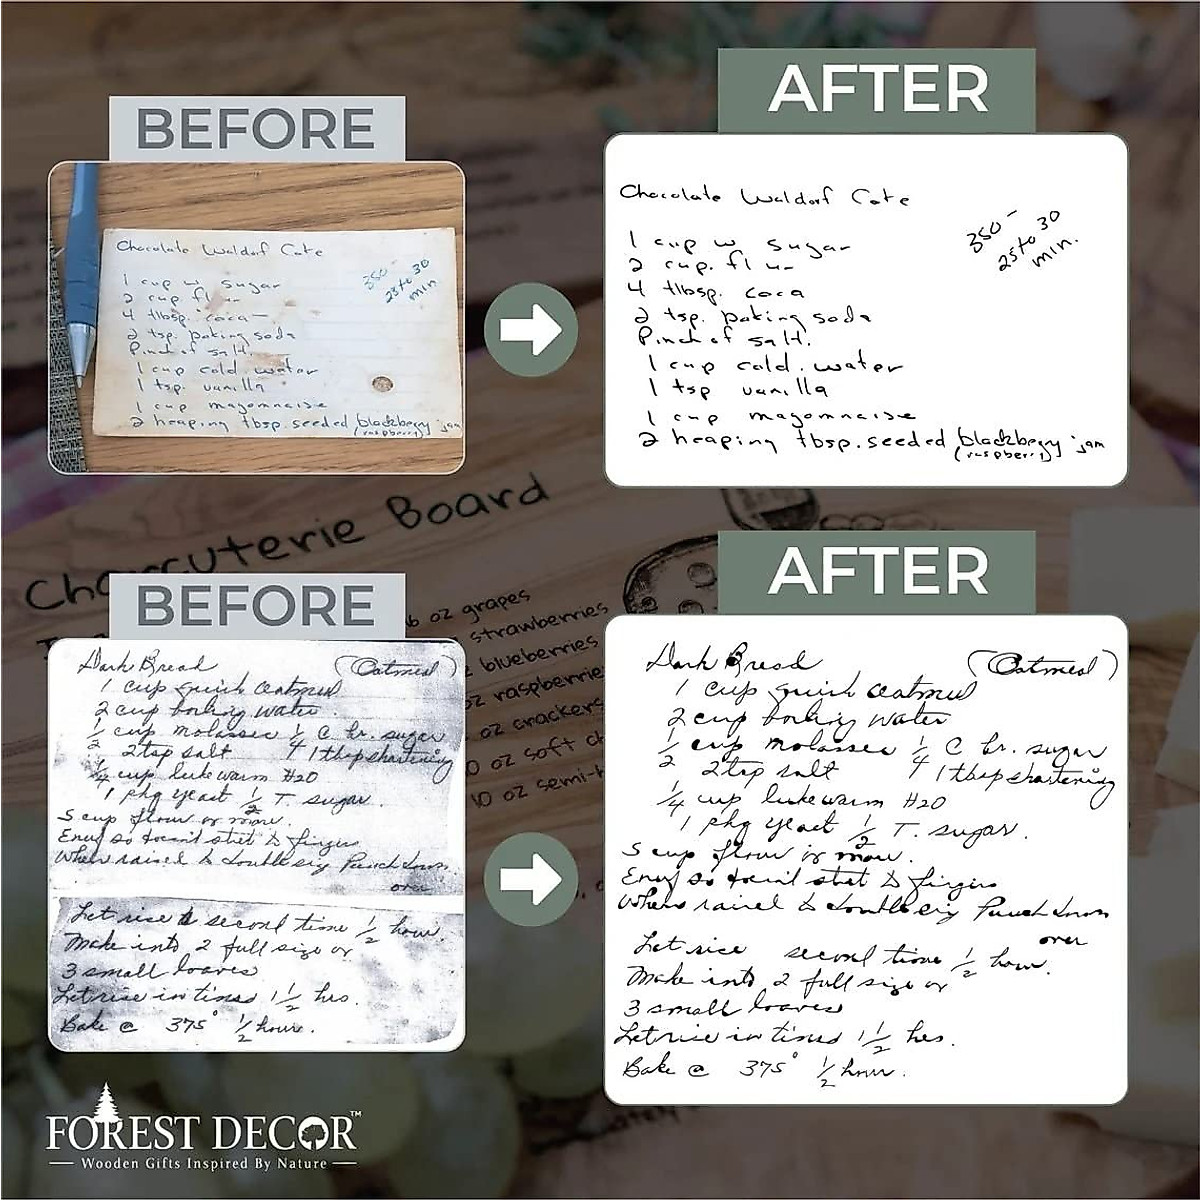 BEFORE
Chocolate Waldorf Cake
350-
25 to 30
min.
1 cup w. sugar
2 cup flour
4 tlbsp. coca
2 tsp. baking soda
Pinch of salt.
1 cup cold water
1 tsp. vanilla
1 cup mayonnaise
2 heaping tbsp. seeded blackberry jam
(raspberry)
AFTER
Chocolate Waldorf Cake
350-
25 to 30
min.
1 cup w. sugar
2 cup. fl ur
4 tlbsp. coca
2 tsp. baking soda
Pinch of salt.
1 cup cold. water
1 tsp vanilla
1 cup mayonnaise
2 heaping tbsp. seeded blackberry jam
(raspberry)
Charcuterie Board
16 oz grapes
strawberries
oz blueberries
oz raspberries
oz crackers
10 oz soft ch
10 oz semi-h
BEFORE
Dark Bread (Oatmeal)
1 cup quick oatmeal
2 cup boiling water
1/2 cup molasses 1/4 C br. sugar
2 tsp salt 1 tbsp shortening
1/4 cup luke warm H20
1 pkg yeast 1/2 T. sugar.
5 cup flour or more.
Enuf so doesn't stick to fingers
When raised to double sig Punch down
over
Let rise a second time 1/2 hour.
Make into 2 full size or
3 small loaves
Let rise in tins 1 1/2 hrs.
Bake @ 375° 1/2 hour.
AFTER
Dark Bread (Oatmeal)
1 cup quick oatmeal
2 cup boiling water
1/2 cup molasses 1/4 C br. sugar
2 tsp salt 1 tbsp shortening
1/4 cup luke warm H20
1 pkg yeast 1/2 T. sugar.
5 cup flour or more.
Enuf so doesn't stick to fingers
When raised to double sig Punch down
over
Let rise second time 1/2 hour.
Make into 2 full size or
3 small loaves
Let rise in tins 1 1/2 hrs.
Bake @ 375° 1/2 hour.
FOREST DECOR™
Wooden Gifts Inspired By Nature